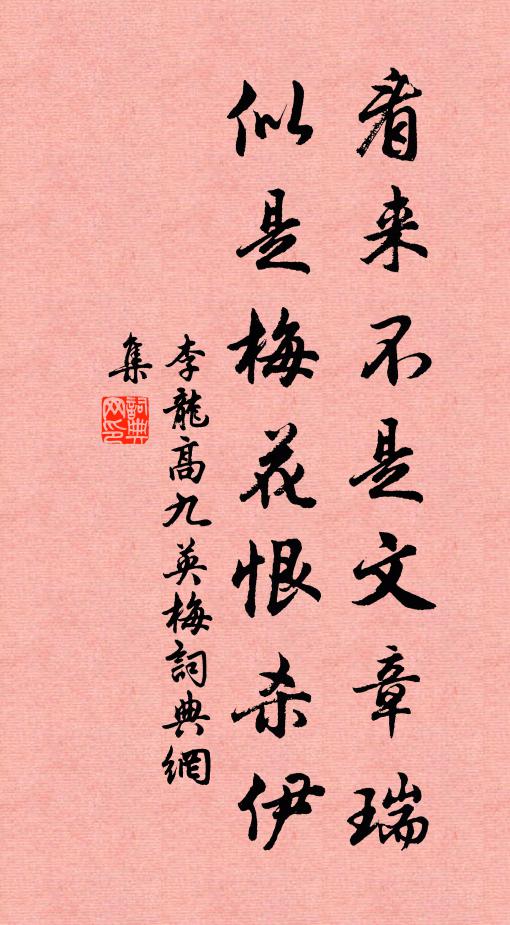 看来不是文章瑞
似是梅花恨杀伊
李龍高九英梅詞典網
集
詞典
网印